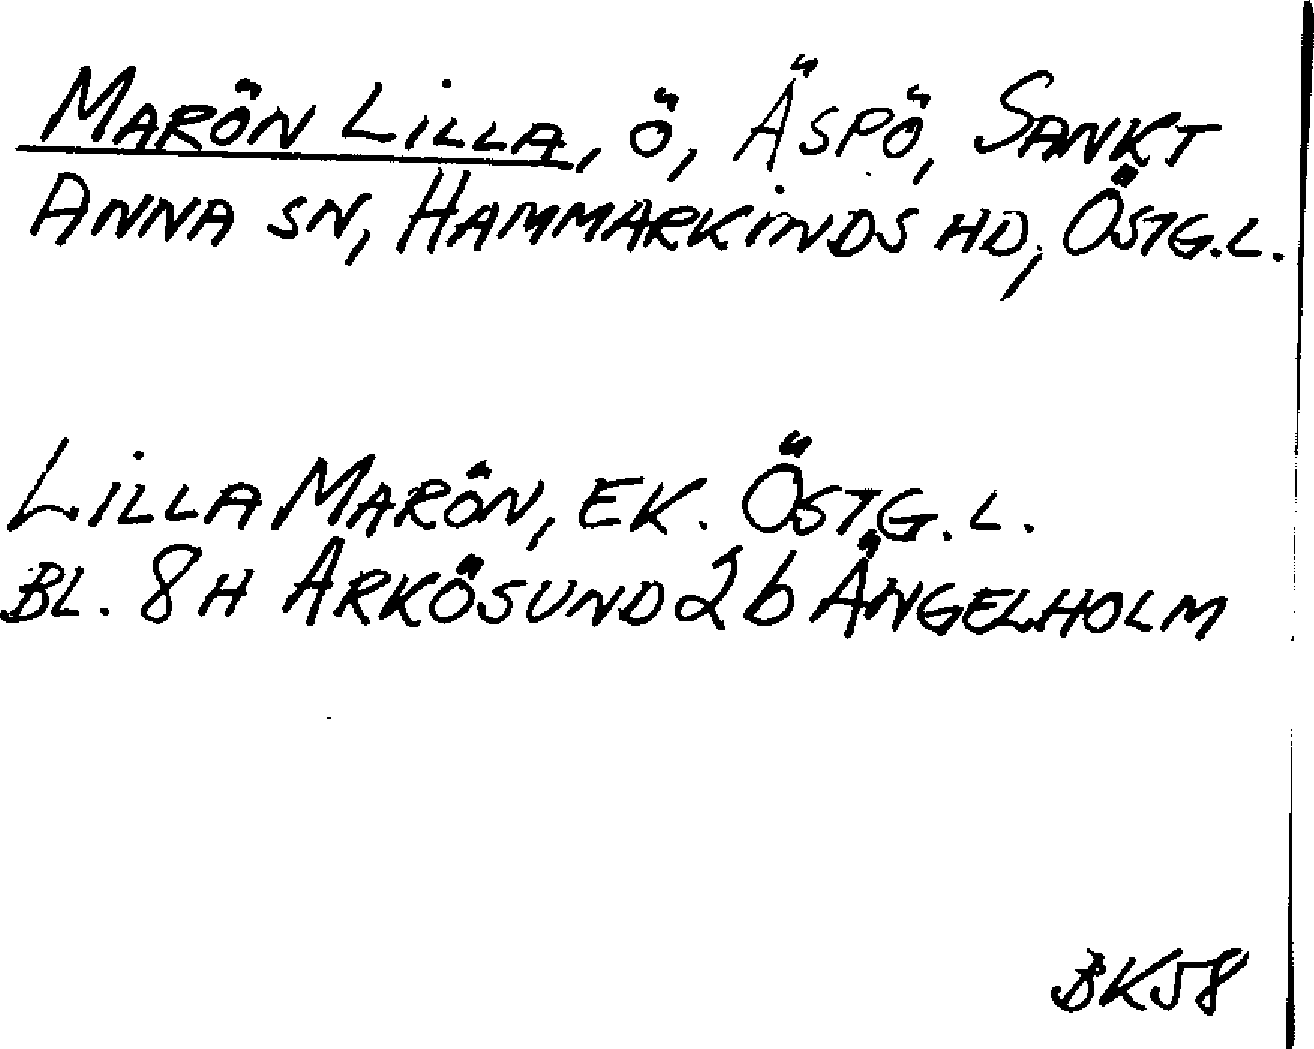 MARÖN LILLA, Ö, ÄSPÖ, SANKT
ANNA SN, HAMMARKINDS HD, ÖSTG.L.
LILLA MARÖN, EK. ÖSTG.L.
BL. 8H ARKÖSUND 2b ÄNGELHOLM
BK58